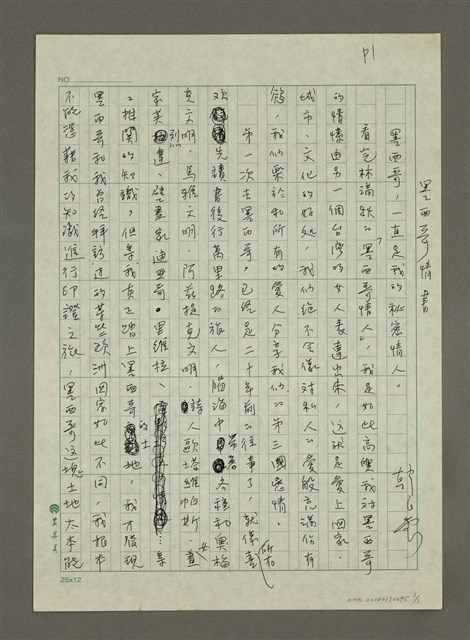 P1
NO
墨西哥情書
墨西哥,一直是我的秘密情人。
看完林滿秋的「墨西哥情人」,我是如此高興我對墨西哥
的情愫由另一個台灣的女人表達出來,這就是愛上國家、
城市、文化的好處,我們絕不會像對私人的愛般充滿佔有
慾,我們樂於和所有的愛人分享我們的第三國戀情。
第一次去墨西哥,已經是二十年前的往事了,就像喜
歡先讀書後行萬里路的旅人,腦海中帶著各種和奧梅
克文明、馬雅文明、阿茲提克文明、詩人歐塔維帕斯、女畫
家芙列達、壁畫家迪亞哥·里維拉、……等
等相關的知識,但等我真正踏上墨西哥的土地,我才發現
墨西哥和我曾經拜訪過的某些歐洲國家如此不同,我根本
不能憑藉我的知識進行印證之旅,墨西哥這塊土地太不能
所有
25x12